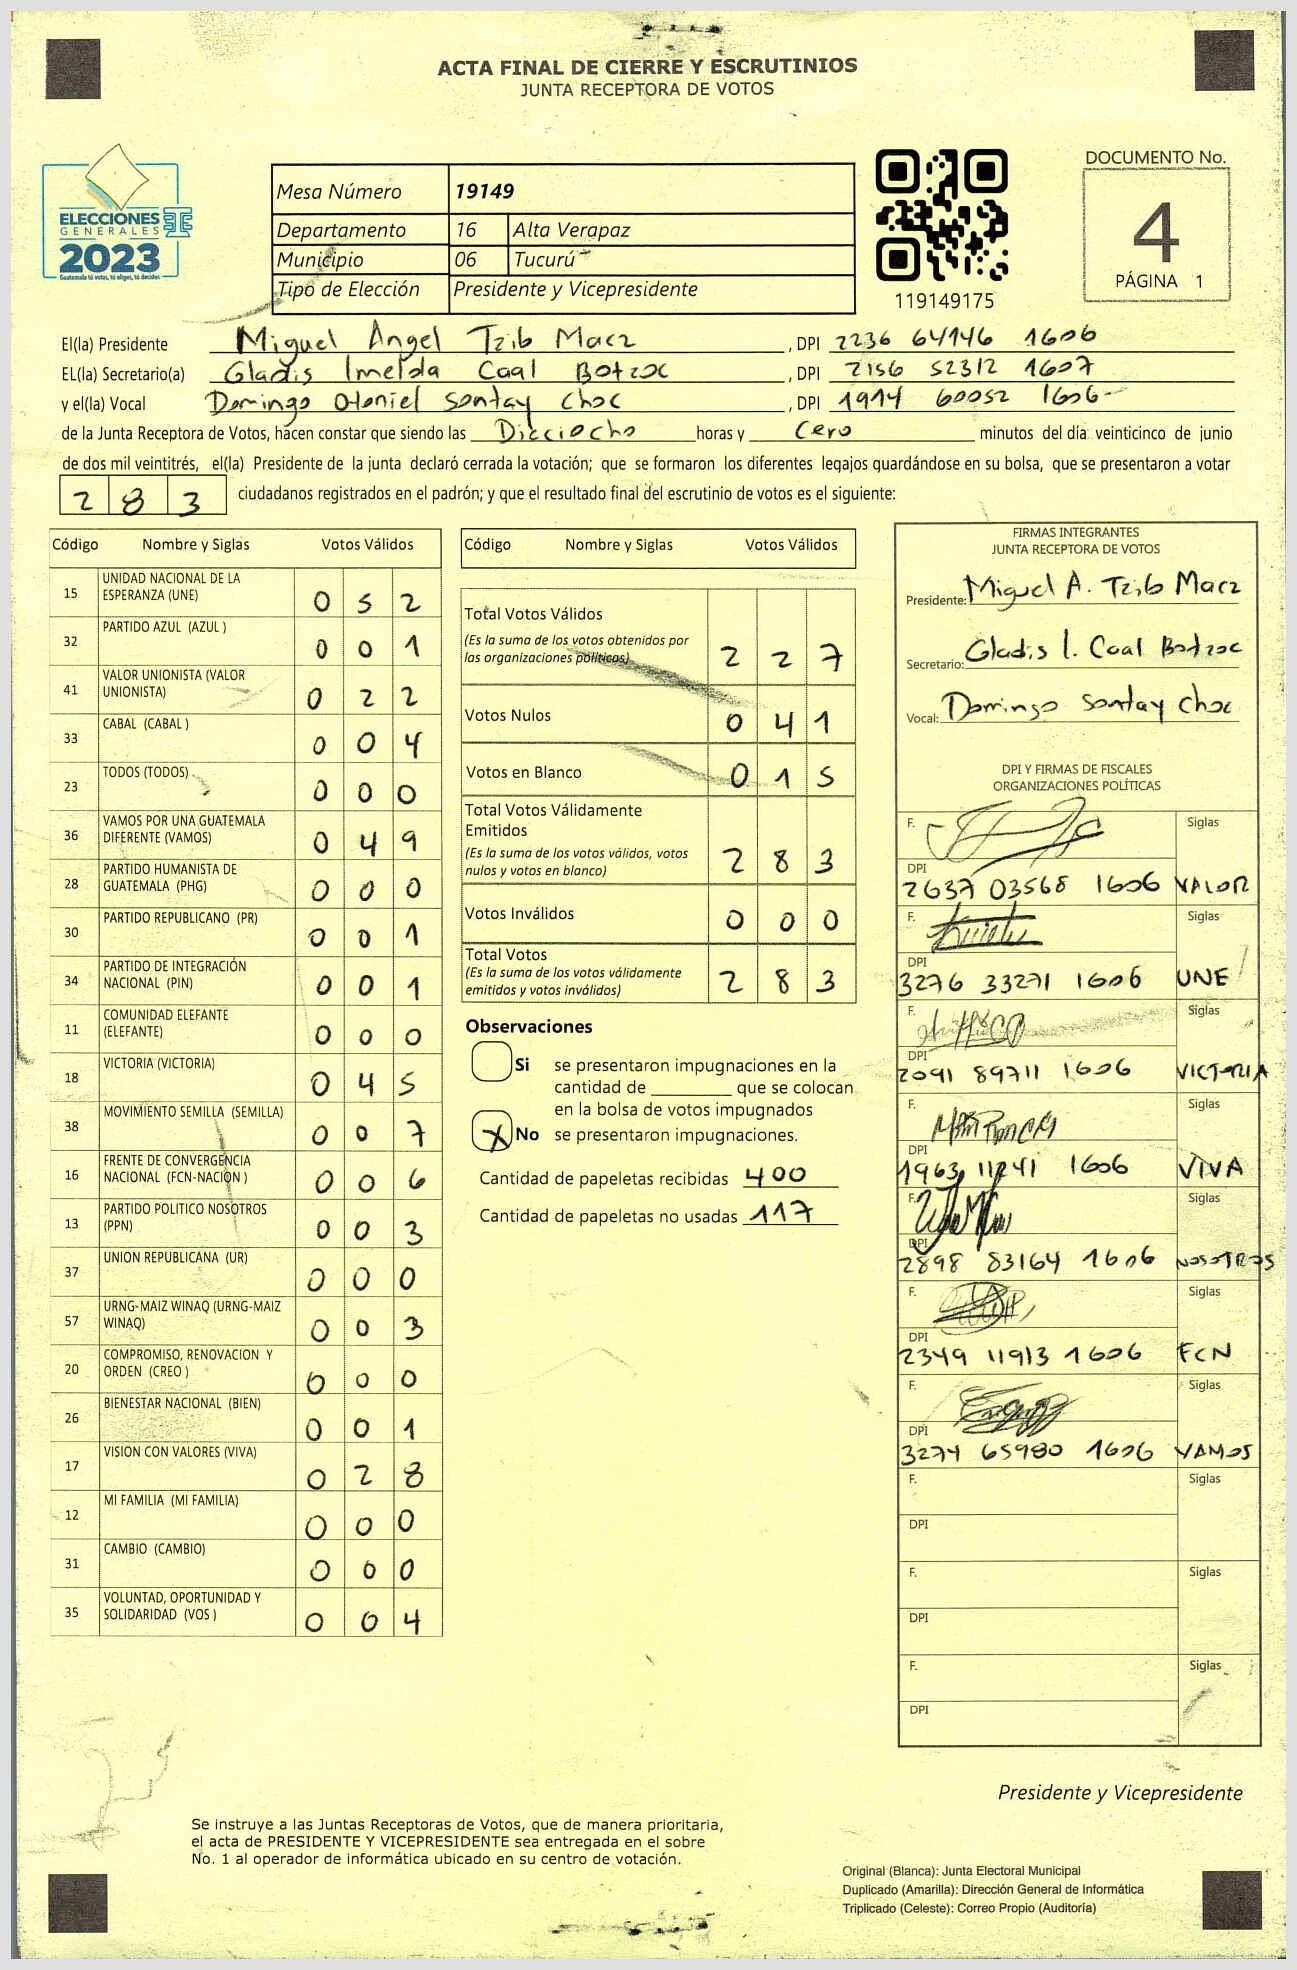 ACTA FINAL DE CIERRE Y ESCRUTINIOS
JUNTA RECEPTORA DE VOTOS
ELECCIONES
GENERALES
2023
Guatemala tú votas, tú eliges, tú decides
Mesa Número 19149
Departamento 16 Alta Verapaz
Municipio 06 Tucurú
Tipo de Elección Presidente y Vicepresidente
119149175
DOCUMENTO No.
4
PÁGINA 1
El(la) Presidente Miguel Angel Tzib Macz, DPI 2236 64146 1606
EL(la) Secretario(a) Gladis Imelda Caal Botzoc, DPI 2156 52312 1607
y el(la) Vocal Domingo Otoniel Sontay Choc, DPI 1914 60052 1606
de la Junta Receptora de Votos, hacen constar que siendo las Dieciocho horas y Cero minutos del día veinticinco de junio
de dos mil veintitrés, el(la) Presidente de la junta declaró cerrada la votación; que se formaron los diferentes legajos guardándose en su bolsa, que se presentaron a votar
283 ciudadanos registrados en el padrón; y que el resultado final del escrutinio de votos es el siguiente:
Código Nombre y Siglas Votos Válidos
15 UNIDAD NACIONAL DE LA ESPERANZA (UNE) 0 5 2
32 PARTIDO AZUL (AZUL ) 0 0 1
41 VALOR UNIONISTA (VALOR UNIONISTA) 0 2 2
33 CABAL (CABAL ) 0 0 4
23 TODOS (TODOS) 0 0 0
36 VAMOS POR UNA GUATEMALA DIFERENTE (VAMOS) 0 4 9
28 PARTIDO HUMANISTA DE GUATEMALA (PHG) 0 0 0
30 PARTIDO REPUBLICANO (PR) 0 0 1
34 PARTIDO DE INTEGRACIÓN NACIONAL (PIN) 0 0 1
11 COMUNIDAD ELEFANTE (ELEFANTE) 0 0 0
18 VICTORIA (VICTORIA) 0 4 5
38 MOVIMIENTO SEMILLA (SEMILLA) 0 0 7
16 FRENTE DE CONVERGENCIA NACIONAL (FCN-NACION ) 0 0 6
13 PARTIDO POLITICO NOSOTROS (PPN) 0 0 3
37 UNION REPUBLICANA (UR) 0 0 0
57 URNG-MAIZ WINAQ (URNG-MAIZ WINAQ) 0 0 3
20 COMPROMISO, RENOVACION Y ORDEN (CREO ) 0 0 0
26 BIENESTAR NACIONAL (BIEN) 0 0 1
17 VISION CON VALORES (VIVA) 0 2 8
12 MI FAMILIA (MI FAMILIA) 0 0 0
31 CAMBIO (CAMBIO) 0 0 0
35 VOLUNTAD, OPORTUNIDAD Y SOLIDARIDAD (VOS ) 0 0 4
Código Nombre y Siglas Votos Válidos
Total Votos Válidos
(Es la suma de los votos obtenidos por
las organizaciones políticas) 2 2 7
Votos Nulos 0 4 1
Votos en Blanco 0 1 5
Total Votos Válidamente
Emitidos
(Es la suma de los votos válidos, votos
nulos y votos en blanco) 2 8 3
Votos Inválidos 0 0 0
Total Votos
(Es la suma de los votos válidamente
emitidos y votos inválidos) 2 8 3
Observaciones
Si se presentaron impugnaciones en la
cantidad de ________ que se colocan
en la bolsa de votos impugnados
X No se presentaron impugnaciones.
Cantidad de papeletas recibidas 400
Cantidad de papeletas no usadas 117
FIRMAS INTEGRANTES
JUNTA RECEPTORA DE VOTOS
Presidente: Miguel A. Tzib Macz
Secretario: Gladis I. Caal Botzoc
Vocal: Domingo Sontay Choc
DPI Y FIRMAS DE FISCALES
ORGANIZACIONES POLÍTICAS
F. Siglas
DPI
2637 03568 1606 VALOR
F. Siglas
DPI
3276 33271 1606 UNE
F. Siglas
DPI
2091 89711 1606 VICTORIA
F. Siglas
DPI
1963 11241 1606 VIVA
F. Siglas
DPI
2898 83164 1606 NOSOTROS
F. Siglas
DPI
2349 11913 1606 FCN
F. Siglas
DPI
3274 65980 1606 VAMOS
F. Siglas
DPI
F. Siglas
DPI
F. Siglas
DPI
Presidente y Vicepresidente
Se instruye a las Juntas Receptoras de Votos, que de manera prioritaria,
el acta de PRESIDENTE Y VICEPRESIDENTE sea entregada en el sobre
No. 1 al operador de informática ubicado en su centro de votación.
Original (Blanca): Junta Electoral Municipal
Duplicado (Amarilla): Dirección General de Informática
Triplicado (Celeste): Correo Propio (Auditoría)